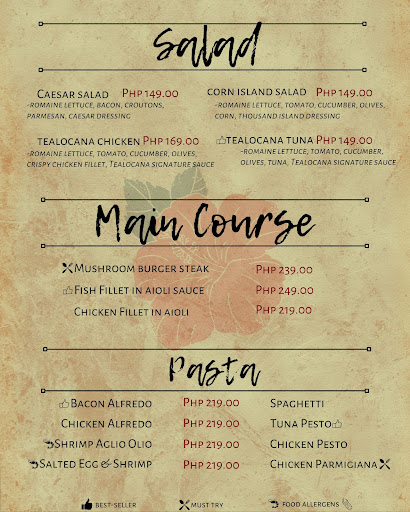 Salad
Caesar salad Php 149.00
-romaine lettuce, bacon, croutons,
parmesan, caesar dressing
corn island salad Php 149.00
-romaine lettuce, tomato, cucumber, olives,
corn, thousand island dressing
tealocana chicken Php 169.00
-romaine lettuce, tomato, cucumber, olives,
crispy chicken fillet, Tealocana signature sauce
tealocana tuna Php 149.00
-romaine lettuce, tomato, cucumber,
olives, tuna, Tealocana signature sauce
Main Course
Mushroom burger steak Php 239.00
Fish Fillet in aioli sauce Php 249.00
Chicken Fillet in aioli Php 219.00
Pasta
Bacon Alfredo Php 219.00 Spaghetti
Chicken Alfredo Php 219.00 Tuna Pesto
Shrimp Aglio Olio Php 219.00 Chicken Pesto
Salted Egg & Shrimp Php 219.00 Chicken Parmigiana
best-seller must try food allergens